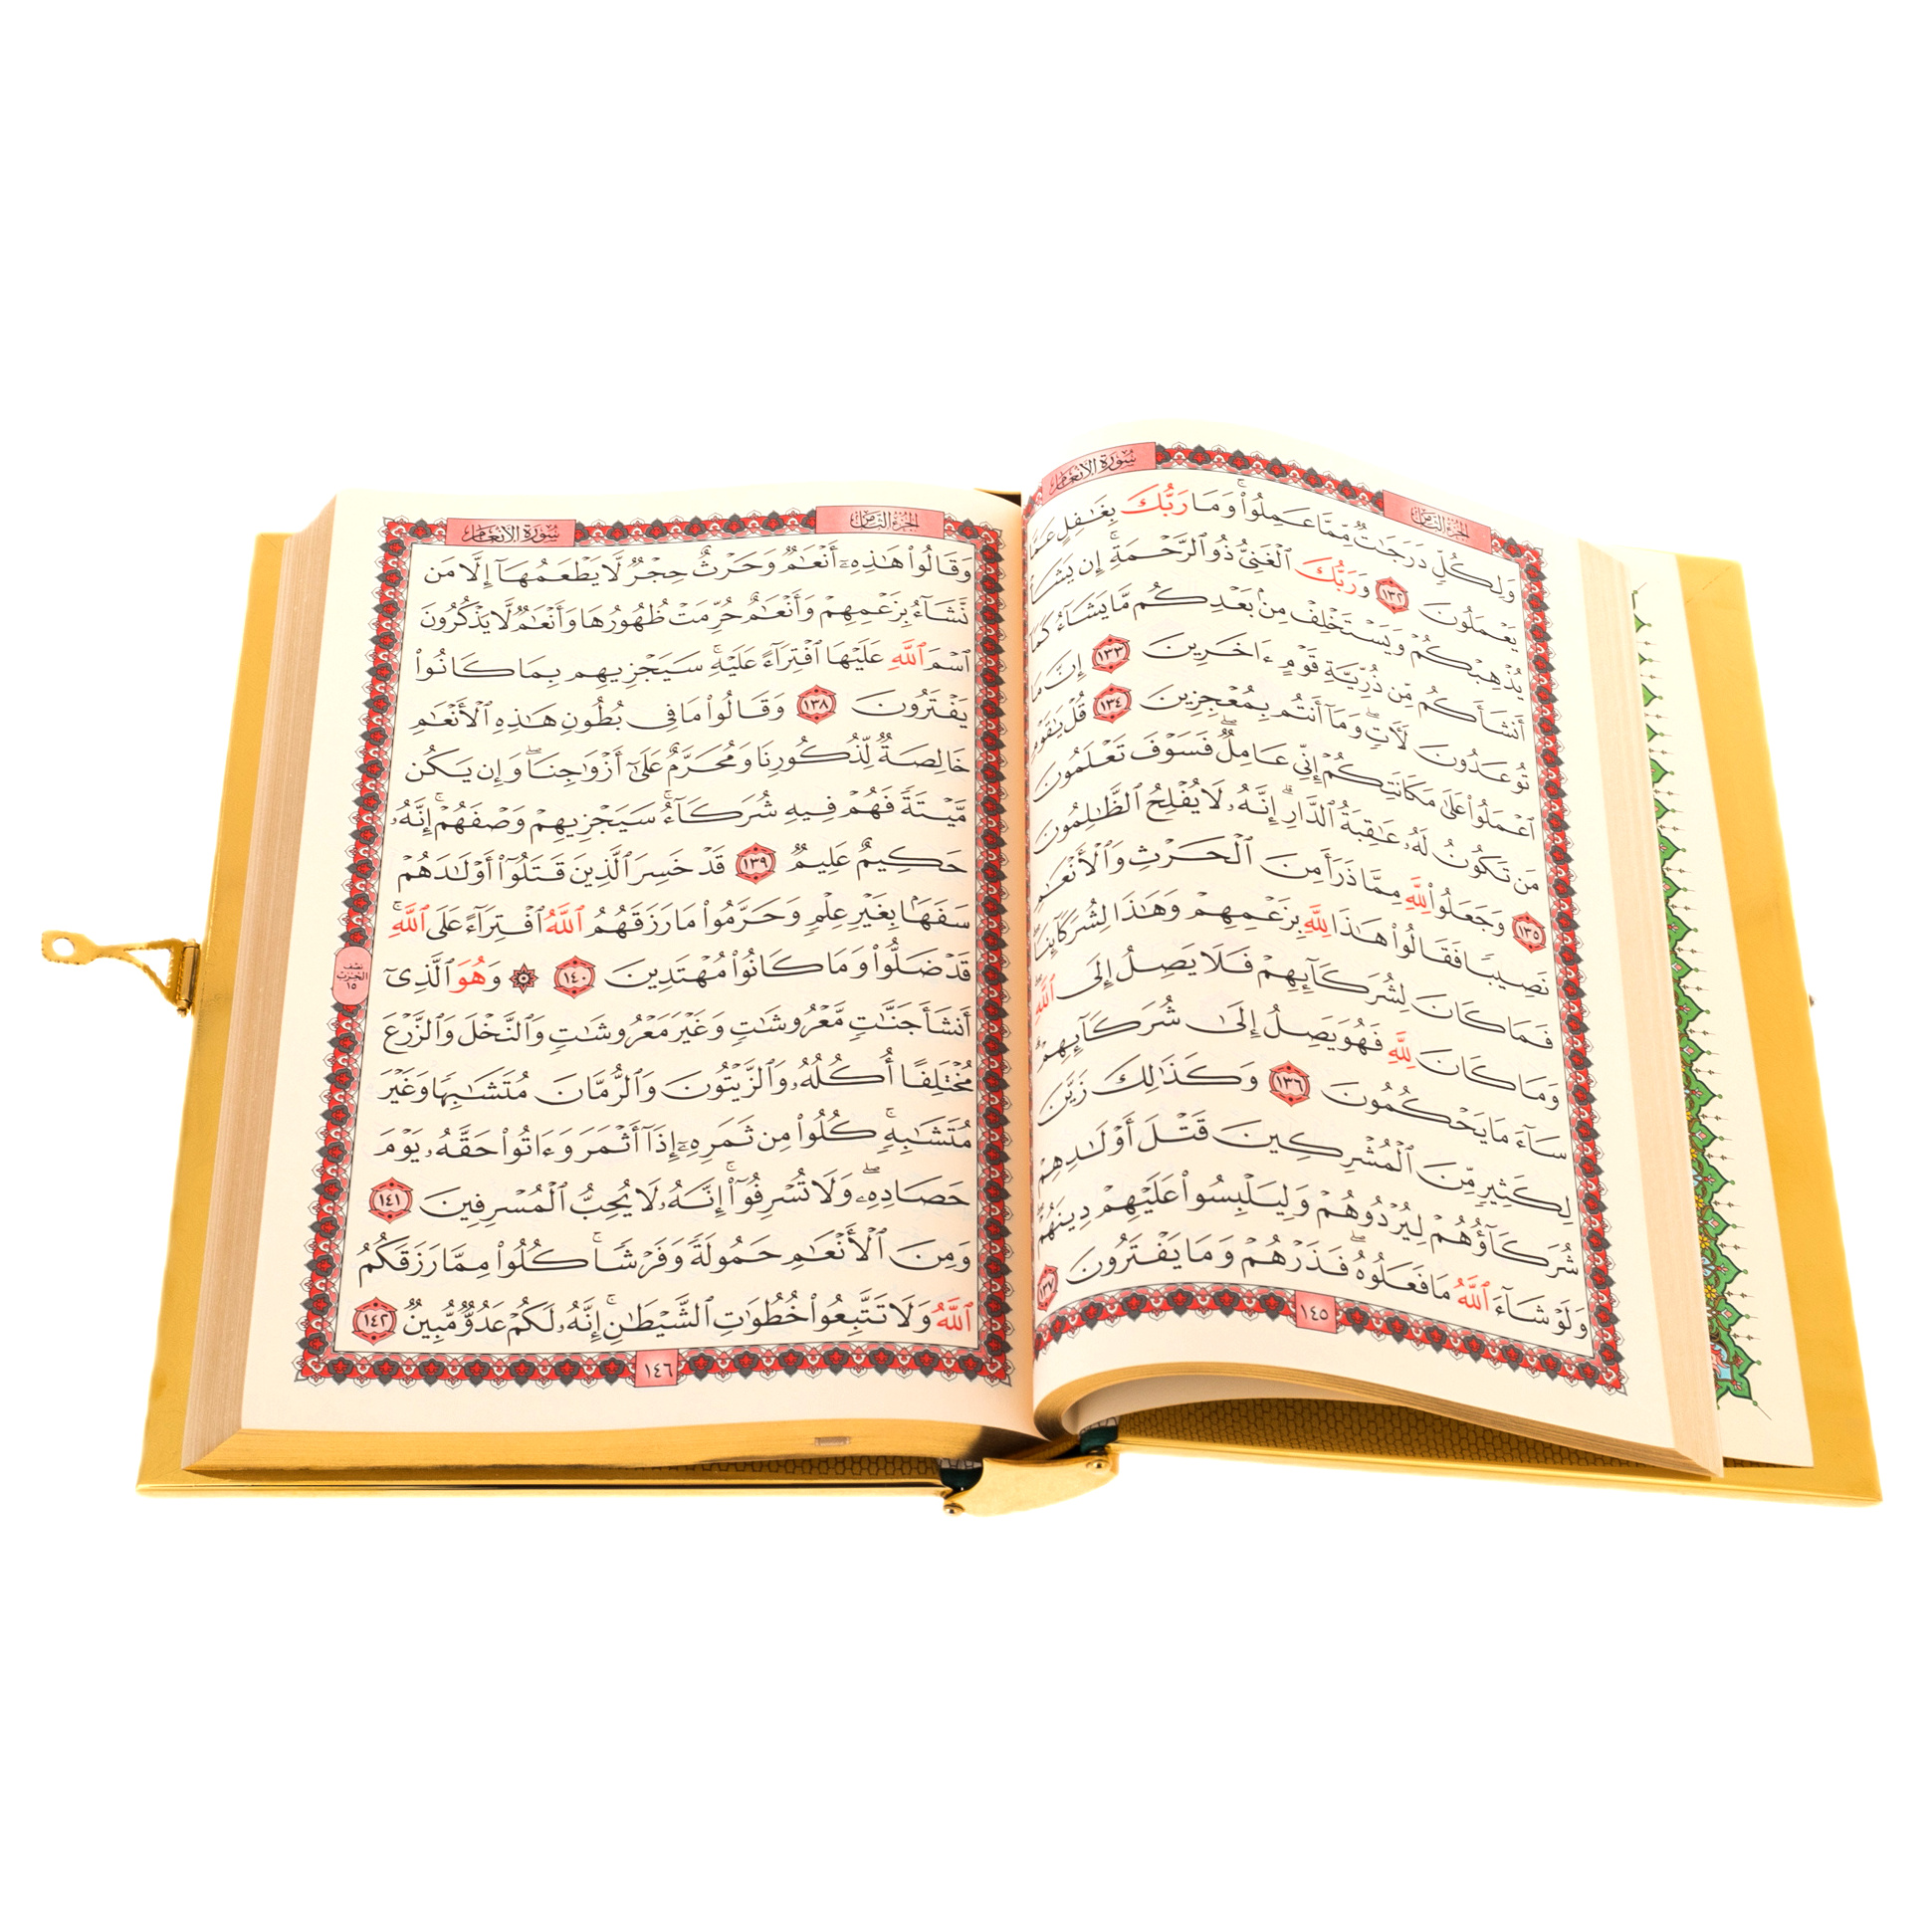 سُورَةُ الأَنْعَامِ
الجُزْءُ الثَّامِنُ
وَلِكُلٍّ دَرَجَٰتٌ مِّمَّا عَمِلُوا۟ ۚ وَمَا رَبُّكَ بِغَٰفِلٍ عَمَّا
يَعْمَلُونَ ١٣٢ وَرَبُّكَ ٱلْغَنِىُّ ذُو ٱلرَّحْمَةِ ۚ إِن يَشَأْ
يُذْهِبْكُمْ وَيَسْتَخْلِفْ مِنۢ بَعْدِكُم مَّا يَشَآءُ كَمَآ
أَنشَأَكُم مِّن ذُرِّيَّةِ قَوْمٍ ءَاخَرِينَ ١٣٣ إِنَّ مَا
تُوعَدُونَ لَـَٔاتٍ ۖ وَمَآ أَنتُم بِمُعْجِزِينَ ١٣٤ قُلْ يَٰقَوْمِ
ٱعْمَلُوا۟ عَلَىٰ مَكَانَتِكُمْ إِنِّى عَامِلٌ ۖ فَسَوْفَ تَعْلَمُونَ
مَن تَكُونُ لَهُۥ عَٰقِبَةُ ٱلدَّارِ ۗ إِنَّهُۥ لَا يُفْلِحُ ٱلظَّٰلِمُونَ
١٣٥ وَجَعَلُوا۟ لِلَّهِ مِمَّا ذَرَأَ مِنَ ٱلْحَرْثِ وَٱلْأَنْعَٰمِ
نَصِيبًا فَقَالُوا۟ هَٰذَا لِلَّهِ بِزَعْمِهِمْ وَهَٰذَا لِشُرَكَآئِنَا ۖ
فَمَا كَانَ لِشُرَكَآئِهِمْ فَلَا يَصِلُ إِلَى ٱللَّهِ ۖ
وَمَا كَانَ لِلَّهِ فَهُوَ يَصِلُ إِلَىٰ شُرَكَآئِهِمْ ۗ
سَآءَ مَا يَحْكُمُونَ ١٣٦ وَكَذَٰلِكَ زَيَّنَ
لِكَثِيرٍ مِّنَ ٱلْمُشْرِكِينَ قَتْلَ أَوْلَٰدِهِمْ
شُرَكَآؤُهُمْ لِيُرْدُوهُمْ وَلِيَلْبِسُوا۟ عَلَيْهِمْ دِينَهُمْ ۖ
وَلَوْ شَآءَ ٱللَّهُ مَا فَعَلُوهُ ۖ فَذَرْهُمْ وَمَا يَفْتَرُونَ ١٣٧
١٤٥
الجُزْءُ الثَّامِنُ
سُورَةُ الأَنْعَامِ
وَقَالُوا۟ هَٰذِهِۦٓ أَنْعَٰمٌ وَحَرْثٌ حِجْرٌ لَّا يَطْعَمُهَآ إِلَّا مَن
نَّشَآءُ بِزَعْمِهِمْ وَأَنْعَٰمٌ حُرِّمَتْ ظُهُورُهَا وَأَنْعَٰمٌ لَّا يَذْكُرُونَ
ٱسْمَ ٱللَّهِ عَلَيْهَا ٱفْتِرَآءً عَلَيْهِ ۚ سَيَجْزِيهِم بِمَا كَانُوا۟
يَفْتَرُونَ ١٣٨ وَقَالُوا۟ مَا فِى بُطُونِ هَٰذِهِ ٱلْأَنْعَٰمِ
خَالِصَةٌ لِّذُكُورِنَا وَمُحَرَّمٌ عَلَىٰٓ أَزْوَٰجِنَا ۖ وَإِن يَكُن
مَّيْتَةً فَهُمْ فِيهِ شُرَكَآءُ ۚ سَيَجْزِيهِمْ وَصْفَهُمْ ۚ إِنَّهُۥ
حَكِيمٌ عَلِيمٌ ١٣٩ قَدْ خَسِرَ ٱلَّذِينَ قَتَلُوٓا۟ أَوْلَٰدَهُمْ
سَفَهًۢا بِغَيْرِ عِلْمٍ وَحَرَّمُوا۟ مَا رَزَقَهُمُ ٱللَّهُ ٱفْتِرَآءً عَلَى ٱللَّهِ ۚ
قَدْ ضَلُّوا۟ وَمَا كَانُوا۟ مُهْتَدِينَ ١٤٠ ۞ وَهُوَ ٱلَّذِىٓ
أَنشَأَ جَنَّٰتٍ مَّعْرُوشَٰتٍ وَغَيْرَ مَعْرُوشَٰتٍ وَٱلنَّخْلَ وَٱلزَّرْعَ
مُخْتَلِفًا أُكُلُهُۥ وَٱلزَّيْتُونَ وَٱلرُّمَّانَ مُتَشَٰبِهًا وَغَيْرَ
مُتَشَٰبِهٍ ۚ كُلُوا۟ مِن ثَمَرِهِۦٓ إِذَآ أَثْمَرَ وَءَاتُوا۟ حَقَّهُۥ يَوْمَ
حَصَادِهِۦ ۖ وَلَا تُسْرِفُوٓا۟ ۚ إِنَّهُۥ لَا يُحِبُّ ٱلْمُسْرِفِينَ ١٤١
وَمِنَ ٱلْأَنْعَٰمِ حَمُولَةً وَفَرْشًا ۚ كُلُوا۟ مِمَّا رَزَقَكُمُ
ٱللَّهُ وَلَا تَتَّبِعُوا۟ خُطُوَٰتِ ٱلشَّيْطَٰنِ ۚ إِنَّهُۥ لَكُمْ عَدُوٌّ مُّبِينٌ ١٤٢
نصف
الحزب
١٥
١٤٦